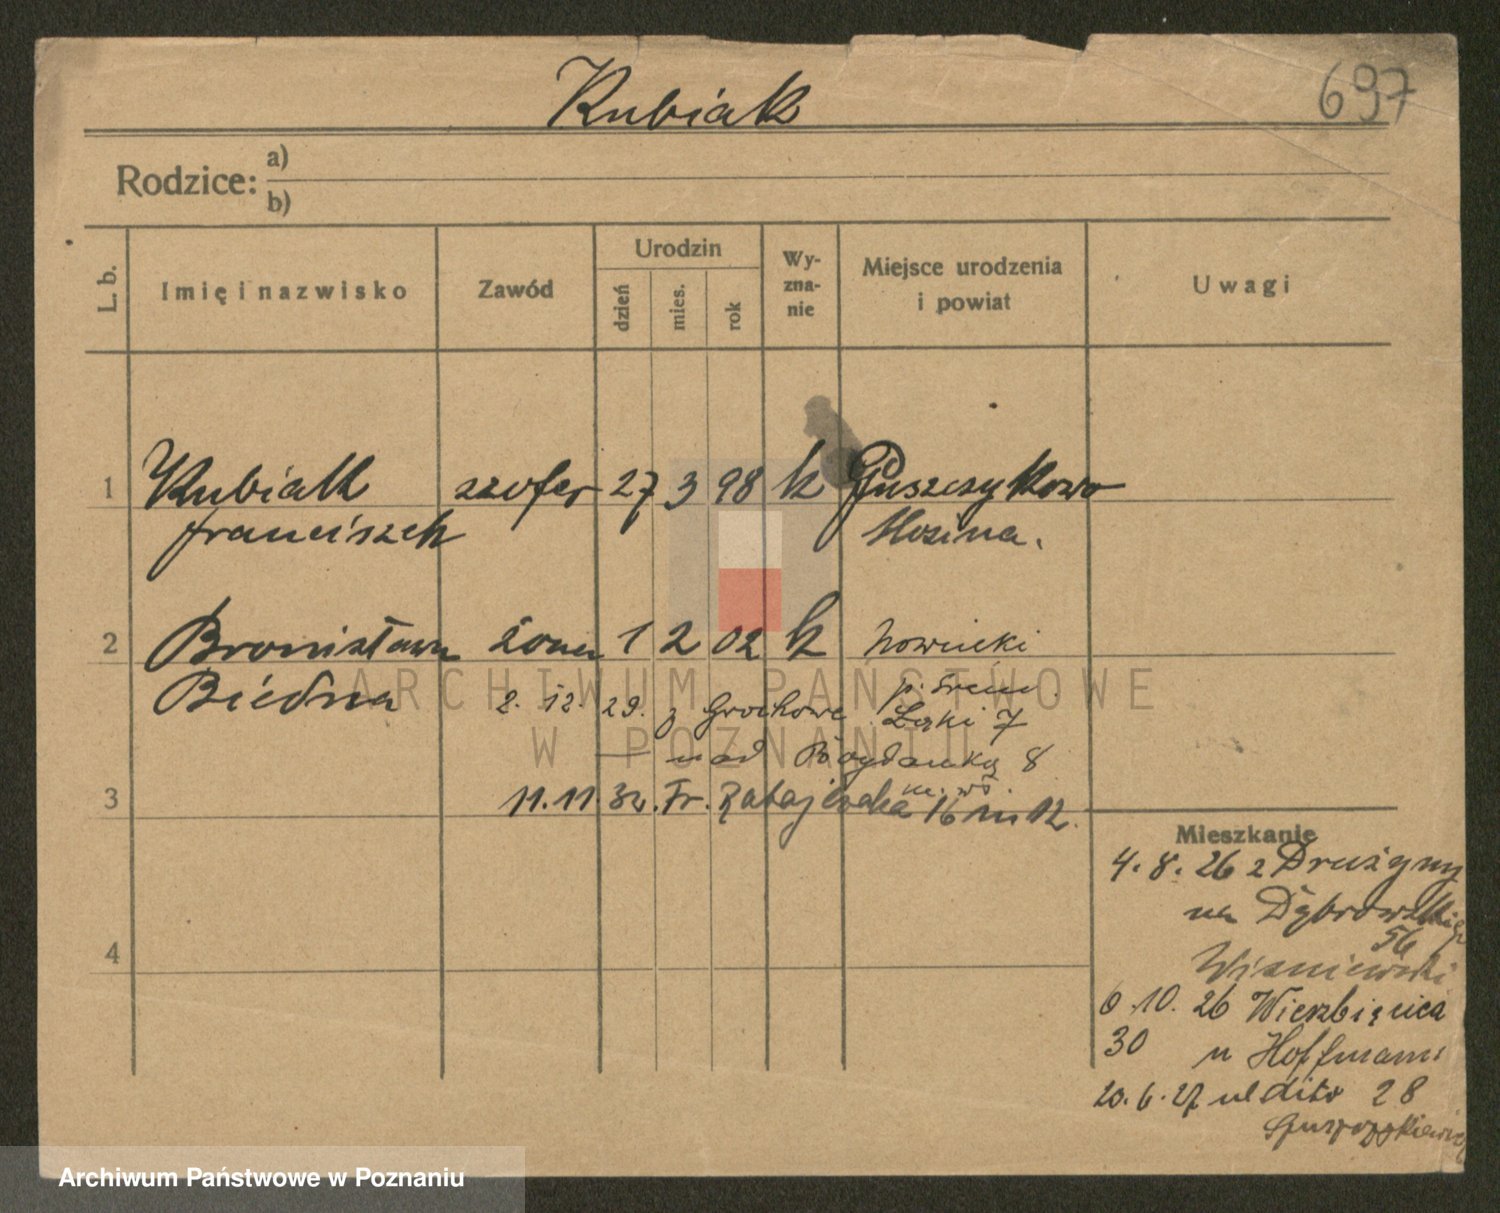 Kubiak
697
Rodzice: a)
b)
L. b.
Imię i nazwisko
Zawód
Urodzin
dzień
mies.
rok
Wy-
zna-
nie
Miejsce urodzenia
i powiat
Uwagi
1 Kubiak szofer 27 3 98 k Puszczykowo
Franciszek Mosina.
2 Bronisława żona 1 2 02 k Nowieczki
Biedna p. Śrem.
2. 12. 29. z Grochowe Łąki 7
— nad Bogdanką 8
m. wł.
3 11.11 32. Fr. Ratajczaka 16 m 12.
Mieszkanie
4. 8. 26 z Drużyny
na Dąbrowskiego
56
Wiśniewski
6.10. 26 Wierzbięcica
30 u Hoffmann
20. 6. 27 ul dito 28
4
ARCHIWUM PAŃSTWOWE
W POZNANIU
Archiwum Państwowe w Poznaniu